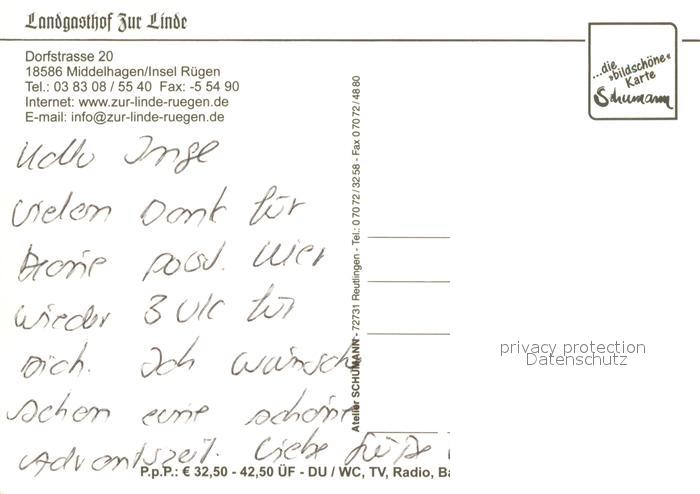 Landgasthof Zur Linde
Dorfstrasse 20
18586 Middelhagen/Insel Rügen
Tel.: 03 83 08 / 55 40 Fax: -5 54 90
Internet: www.zur-linde-ruegen.de
E-mail: info@zur-linde-ruegen.de
...die
»bildschöne«
Karte
Schumann
Hallo Inge
vielen Dank für
Deine Post. Hier
wieder 3 UK für
Dich. Ich wünsche
schon eine schöne
Adventszeit. Liebe Grüße
Atelier SCHUMANN - 72731 Reutlingen - Tel.: 0 70 72 / 32 58 - Fax 0 70 72 / 48 80
privacy protection
Datenschutz
P.p.P.: € 32,50 - 42,50 ÜF - DU / WC, TV, Radio, Ba